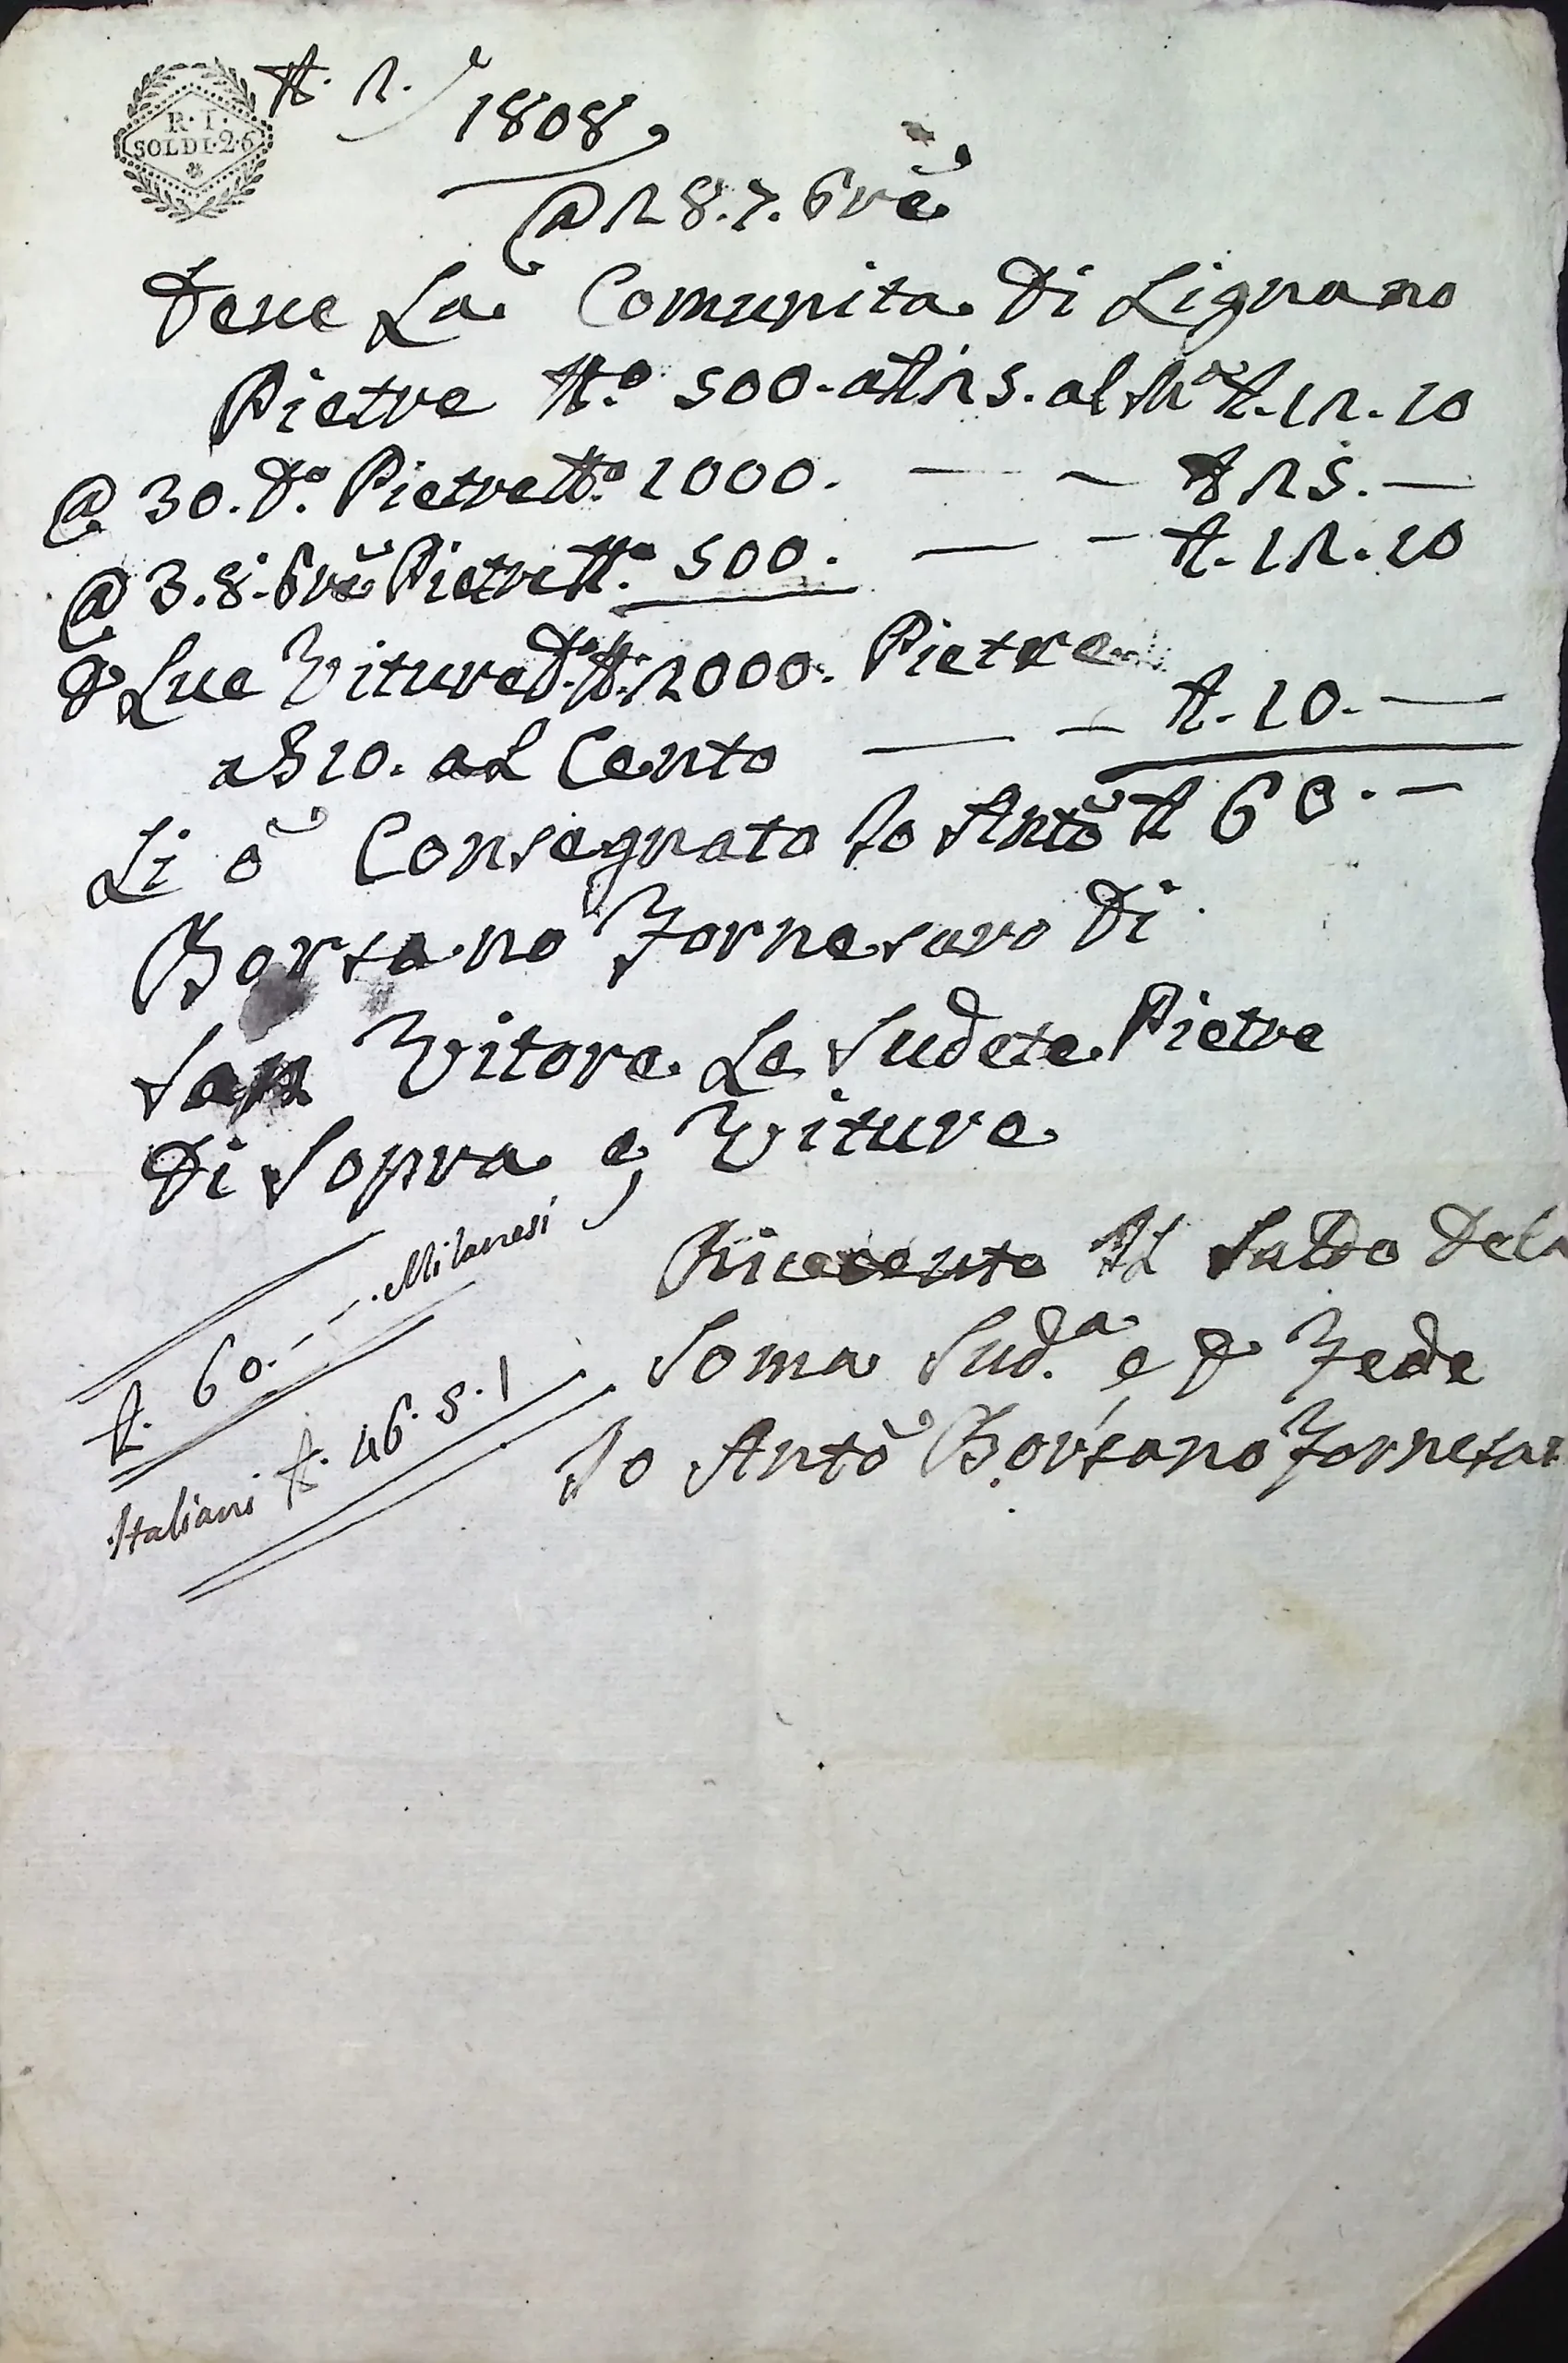 R. I.
SOLDI. 2. 6
N. 2.
1808
@ 28. 7.bre
Deue La Comunita Di Lignano
Pietre N.o 500. a £ 25. al M.o £. 12. 10
@ 30. D.o Pietre N.o 1000. — — £ 25. —
@ 3. 8.bre Pietre N.o 500. — — £. 12. 10
P Lue Viture D. N. 2000. Pietre
a S 10. al Cento — — £. 10. —
Li ò Consegnato Io Antõ £ 60. —
Borsano Fornesaro Di
San Vitore Le Sudete Pietre
Di Sopra e Viture
Riceuuto Il Saldo Dela
Soma Sud.a e P Fede
Io Antõ Borsano Fornesar
£. 60. — — . Milanesi
Italiani £. 46. 5. 1